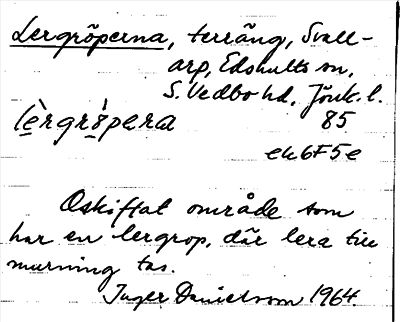 Lergröperna, terräng, Svall-
arp, Edshults sn,
S. Vedbo hd, Jönk. l.
lèrgrö̀pera 85
ek6F5e
Oskiftat område som
har en lergrop, där lera till
murning tas.
Inger Danielsson 1964.